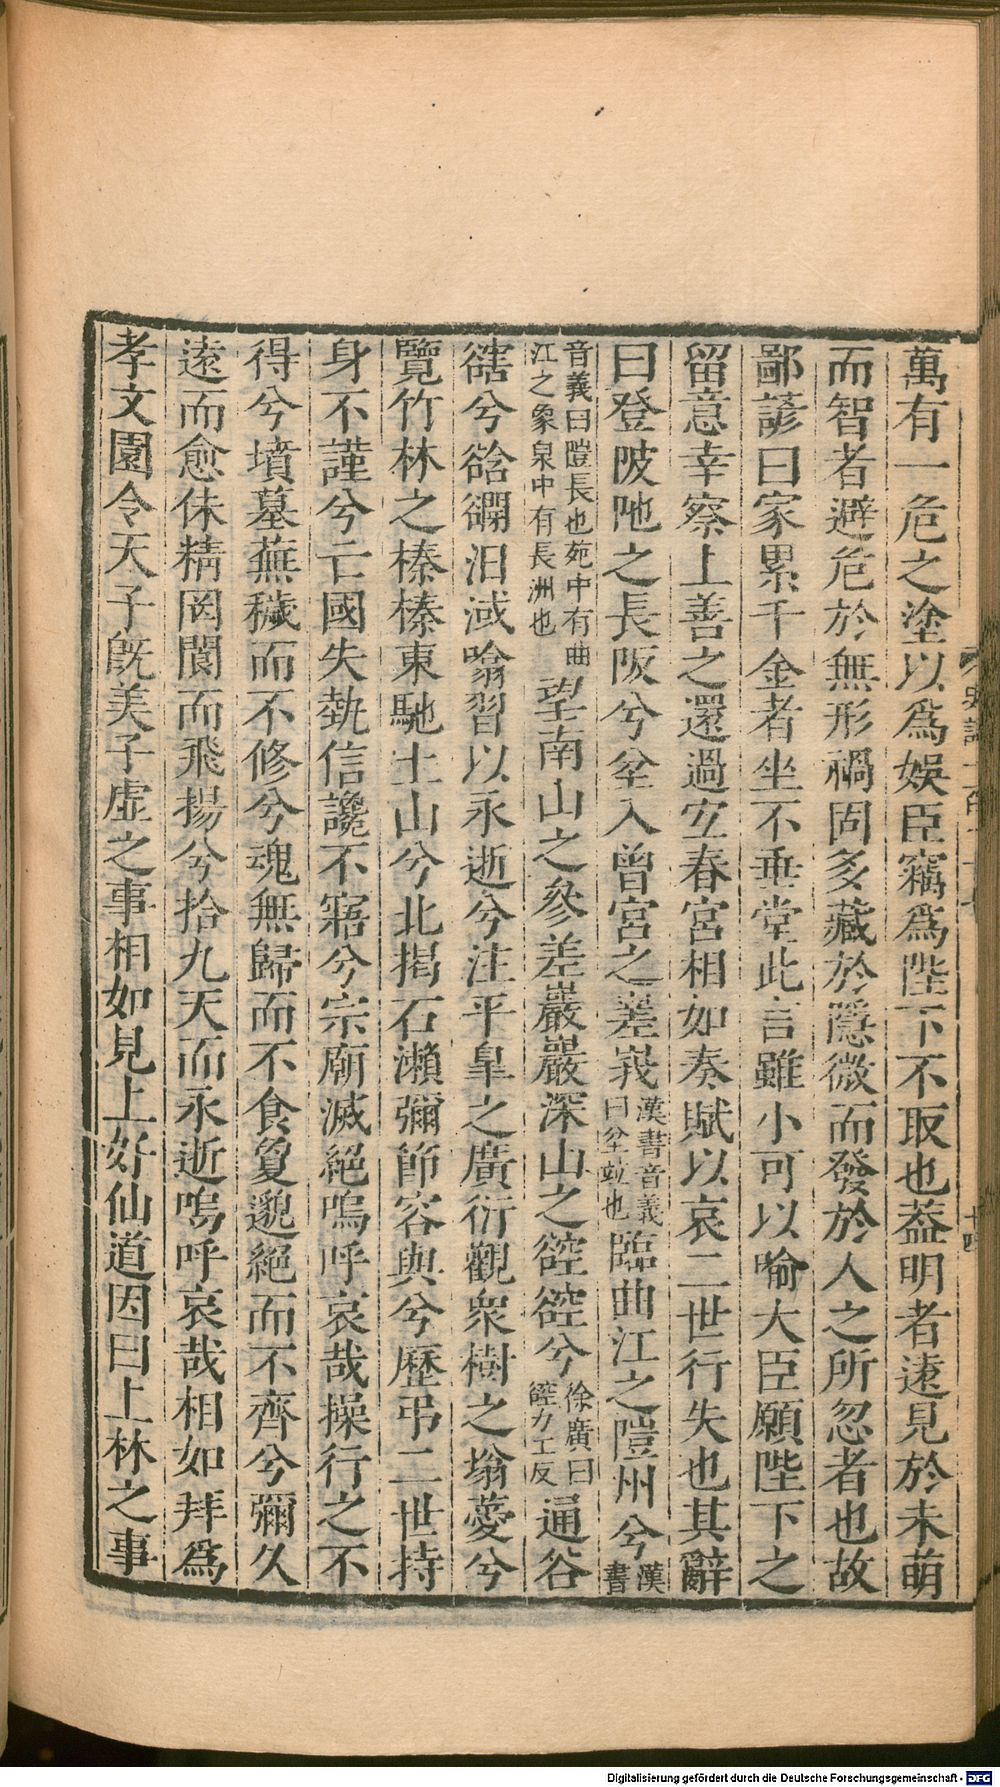 萬有一危之塗以爲娛臣竊爲陛下不取也葢明者逺見於未萌
而智者避危於無形禍固多藏於隱微而發於人之所忽者也故
鄙諺曰家累千金者坐不垂堂此言雖小可以喻大臣願陛下之
留意幸察上善之還過宜春宮相如奏賦以哀二世行失也其辭
曰登陂阤之長阪兮坌入曾宮之嵳峩漢書音義曰坌竝也臨曲江之隑州兮漢書
音義曰隑長也苑中有曲江之象泉中有長洲也望南山之參差巖巖深山之谾谾兮徐廣曰谾力工反通谷
豁兮谽𧯆汨淢噏習以永逝兮注平皐之廣衍觀衆樹之塕薆兮
覽竹林之榛榛東馳土山兮北揭石瀨彌節容與兮歷弔二世持
身不謹兮亡國失埶信讒不寤兮宗廟滅絕嗚呼哀哉操行之不
得兮墳墓蕪穢而不修兮魂無歸而不食敻邈絕而不齊兮彌久
逺而愈佅精罔閬而飛揚兮拾九天而永逝嗚呼哀哉相如拜爲
孝文園令天子旣美子虛之事相如見上好仙道因曰上林之事
十四
Digitalisierung gefördert durch die Deutsche Forschungsgemeinschaft - DFG